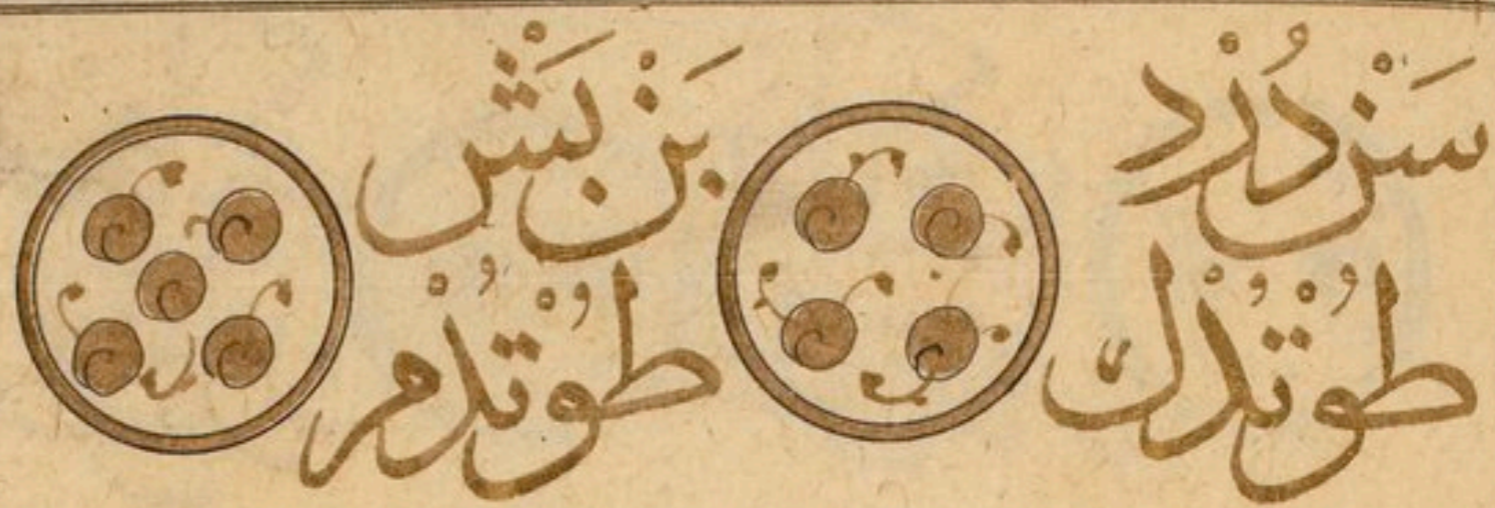 سَنْ دُرْد
طُوتْدُكْ
بَنْ بَشْ
طُوتْدُمْ